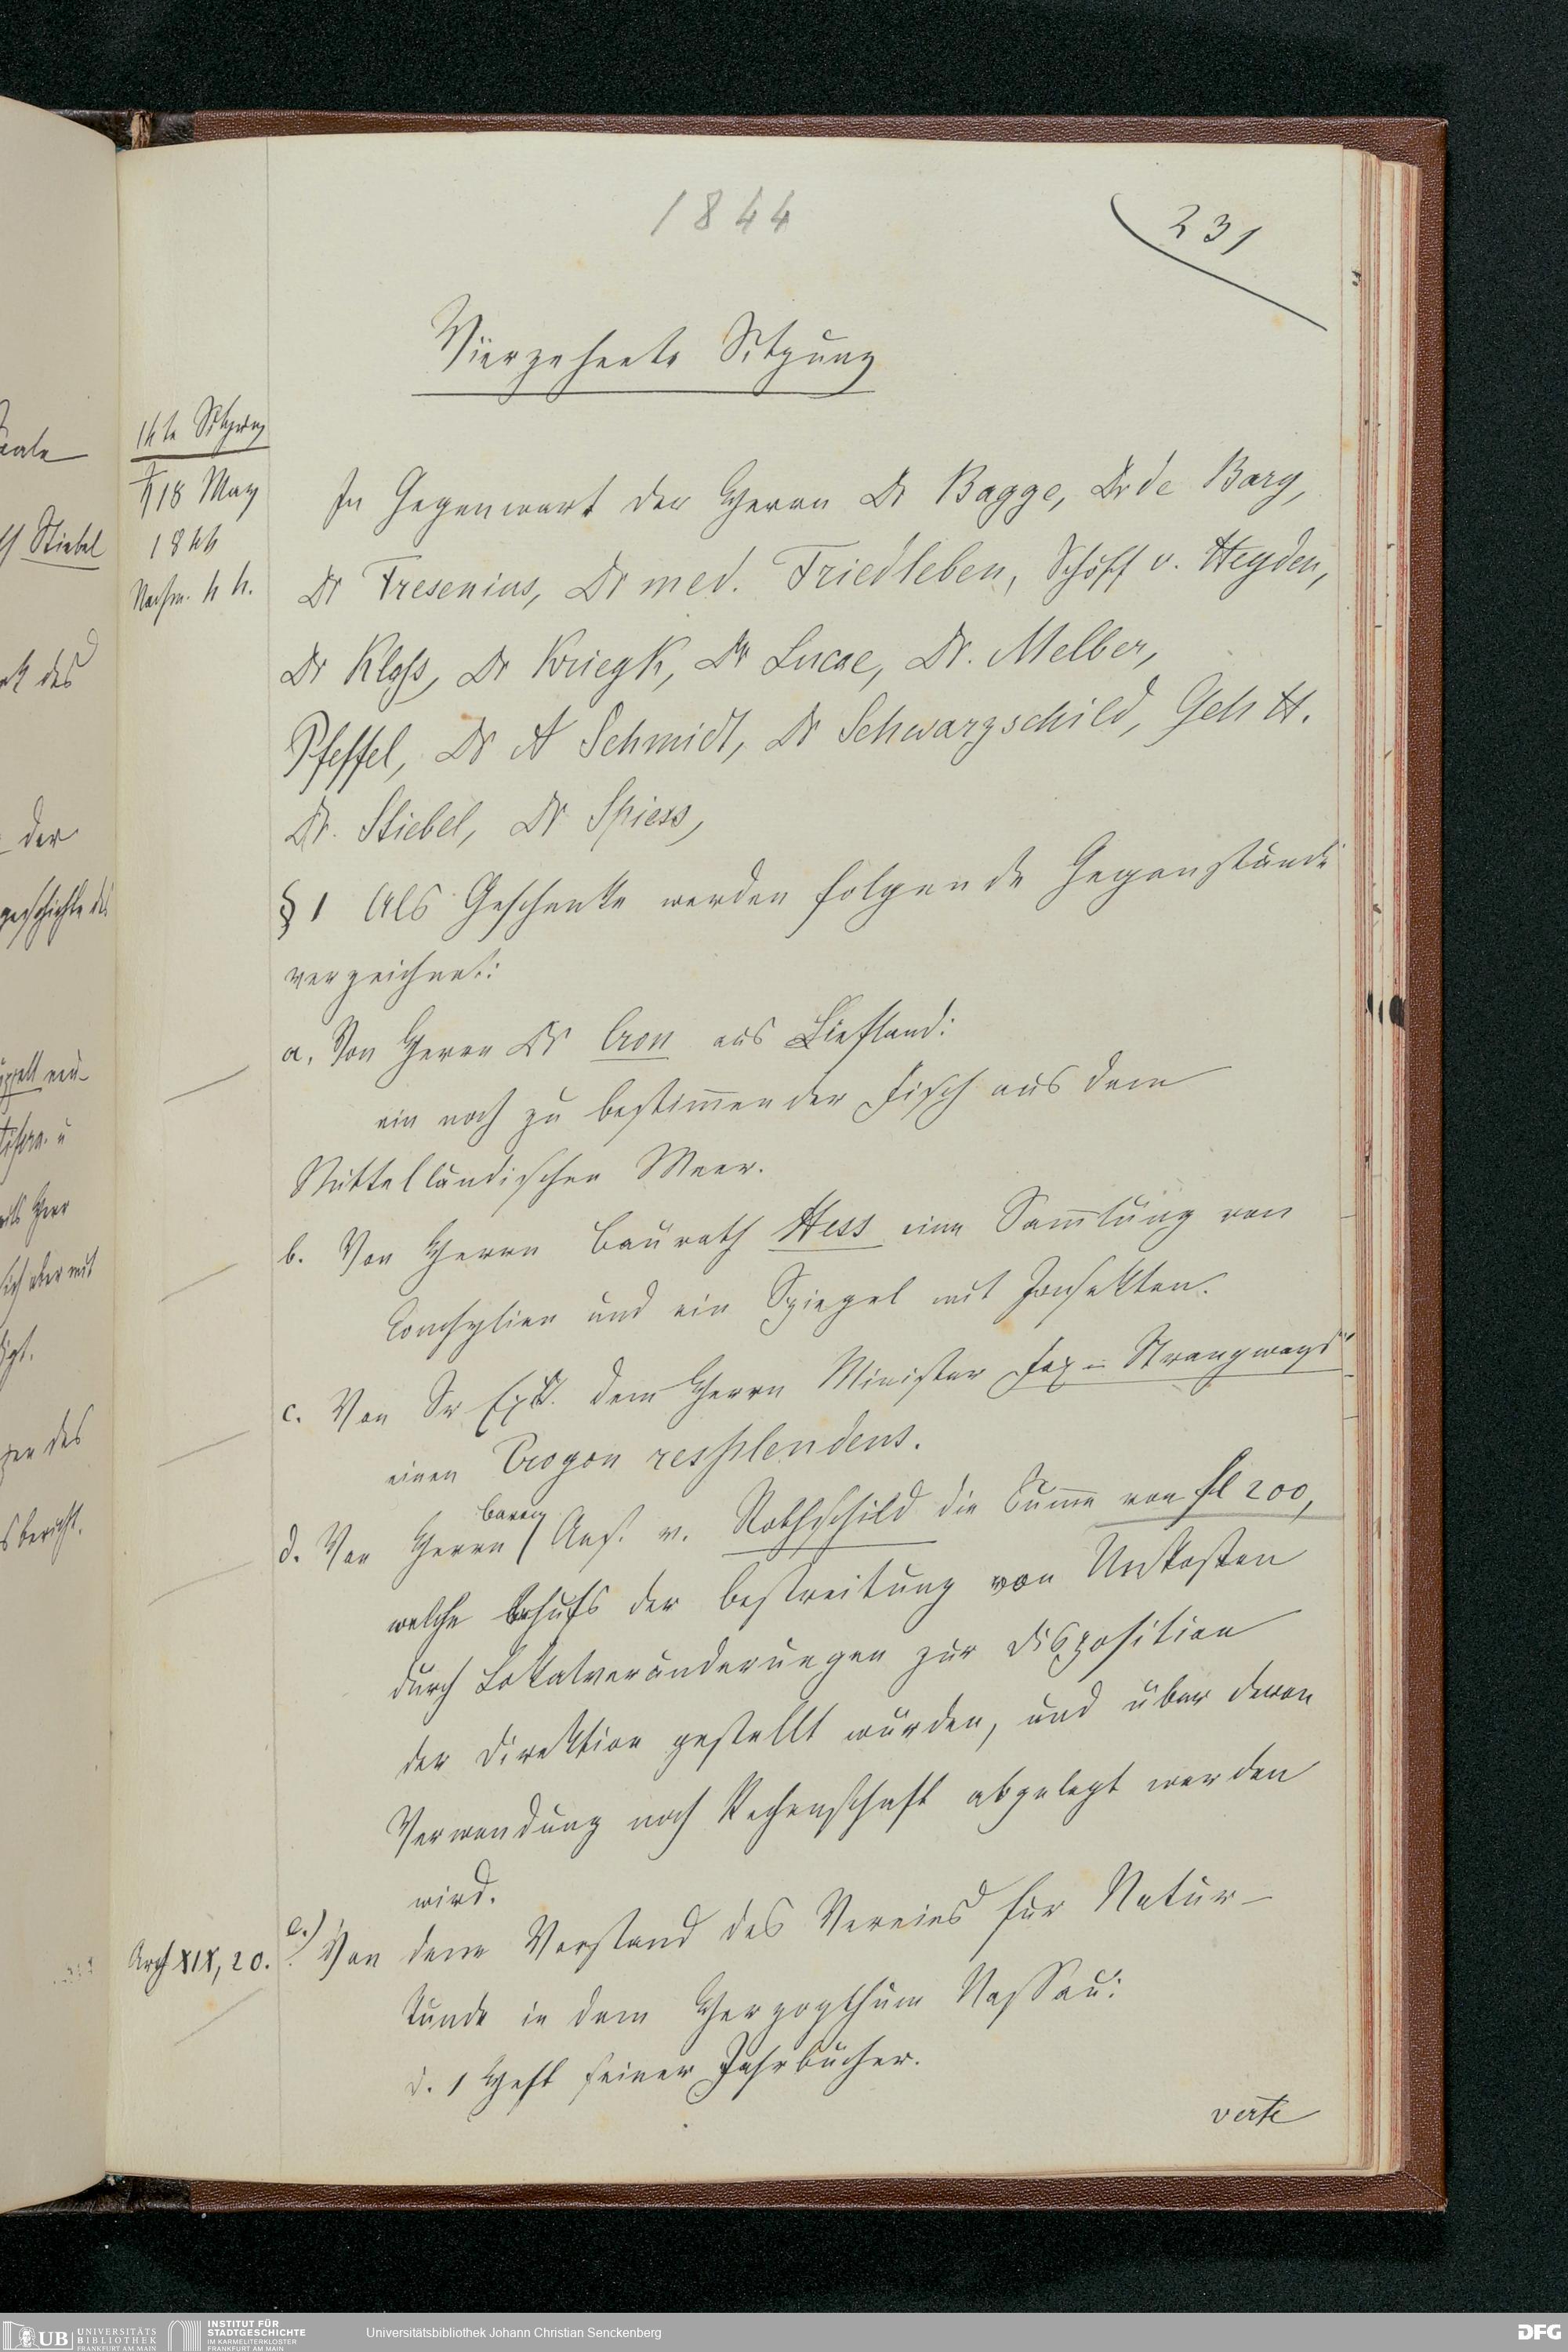 1844
231
Vierzehnte Sitzung
14te Sitzung
♄ 18 May
1844
Nachm. 4 h.
In Gegenwart der Herrn Dr Bagge, Dr de Bary,
Dr Fresenius, Dr med. Friedleben, Schöff v. Heyden,
Dr Kloß, Dr Kriegk, Dr Lucae, Dr. Melber,
Pfeffel, Dr A Schmidt, Dr Schwarzschild, Geh H.
Dr. Stiebel, Dr Spiess,
§ 1 Als Geschenke werden folgende Gegenstände
verzeichnet:
a. Von Herrn Dr Cron aus Liefland:
ein noch zu bestim̄ender Fisch aus dem
Mittelländischen Meer.
b. Von Herrn Baurath Hess eine Sam̄lung von
Conchylien und ein Spiegel mit Insekten.
c. Von Sr Exll. dem Herrn Minister Fox-Strangways
einen Trogon resplendens.
d. Von Herrn Baron Ans. v. Rothschild die Sum̄e von fl 200,
welche behufs der Bestreitung von Unkosten
durch Lokalveränderungen zur Disposition
der Direktion gestellt wurden, und über deren
Verwendung noch Rechenschaft abgelegt werden
wird.
Arch XIX, 20.
e.) Von dem Vorstand des Vereins für Natur-
kunde in dem Herzogthum Nassau:
d. 1 Heft seiner Jahrbücher.
verte
Stiebel
des
der
geschichte des
aber mit
des
bericht.
UB UNIVERSITÄTS
BIBLIOTHEK
FRANKFURT AM MAIN
INSTITUT FÜR
STADTGESCHICHTE
IM KARMELITERKLOSTER
FRANKFURT AM MAIN
Universitätsbibliothek Johann Christian Senckenberg
DFG